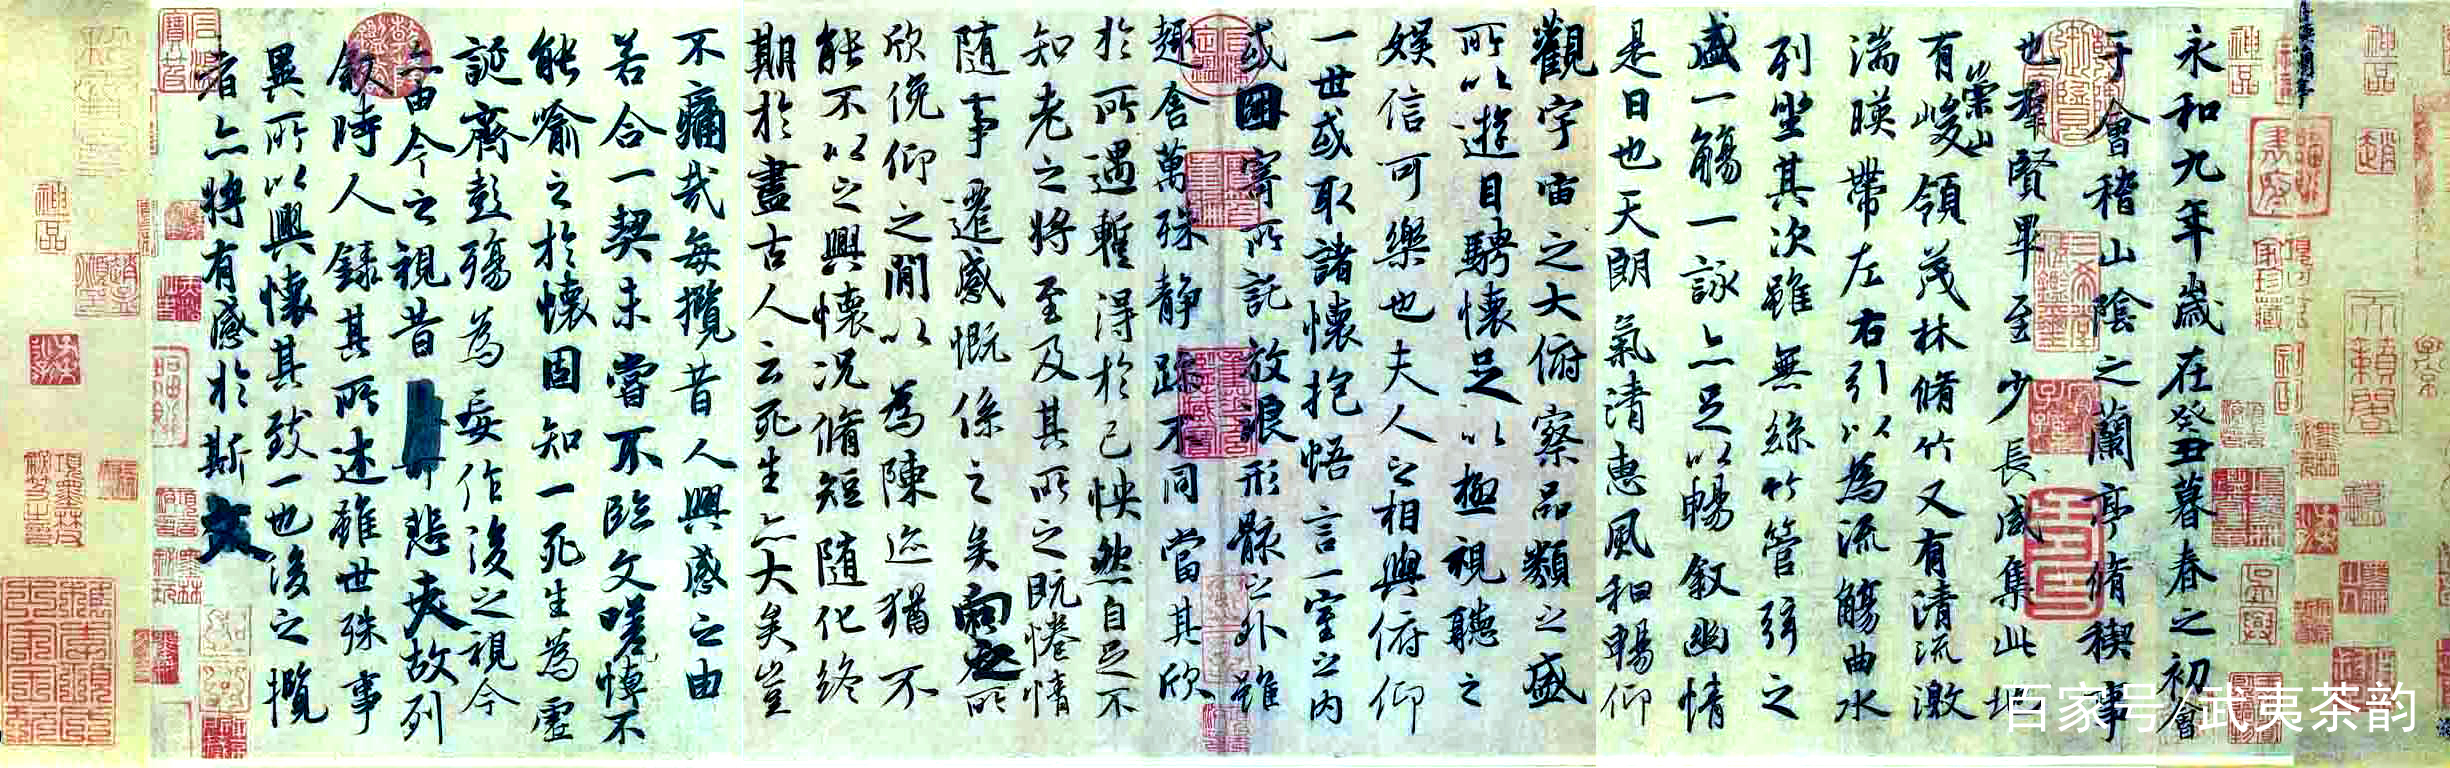 永和九年歲在癸丑暮春之初會
于會稽山陰之蘭亭脩稧事
也羣賢畢至少長咸集此地
有崇山峻領茂林脩竹又有清流激
湍暎帶左右引以為流觴曲水
列坐其次雖無絲竹管弦之
盛一觴一詠亦足以暢敘幽情
是日也天朗氣清惠風和暢仰
觀宇宙之大俯察品類之盛
所以遊目騁懷足以極視聽之
娛信可樂也夫人之相與俯仰
一世或取諸懷抱悟言一室之內
或因寄所託放浪形骸之外雖
趣舍萬殊靜躁不同當其欣
於所遇暫得於己怏然自足不
知老之將至及其所之既惓情
隨事遷感慨係之矣向之所
欣俛仰之閒以為陳迹猶不
能不以之興懷況脩短隨化終
期於盡古人云死生亦大矣豈
不痛哉每攬昔人興感之由
若合一契未嘗不臨文嗟悼不
能喻之於懷固知一死生為虛
誕齊彭殤為妄作後之視今
亦由今之視昔悲夫故列
敘時人錄其所述雖世殊事
異所以興懷其致一也後之攬
者亦將有感於斯文
神品
神品
神品
百家号/武夷茶韵